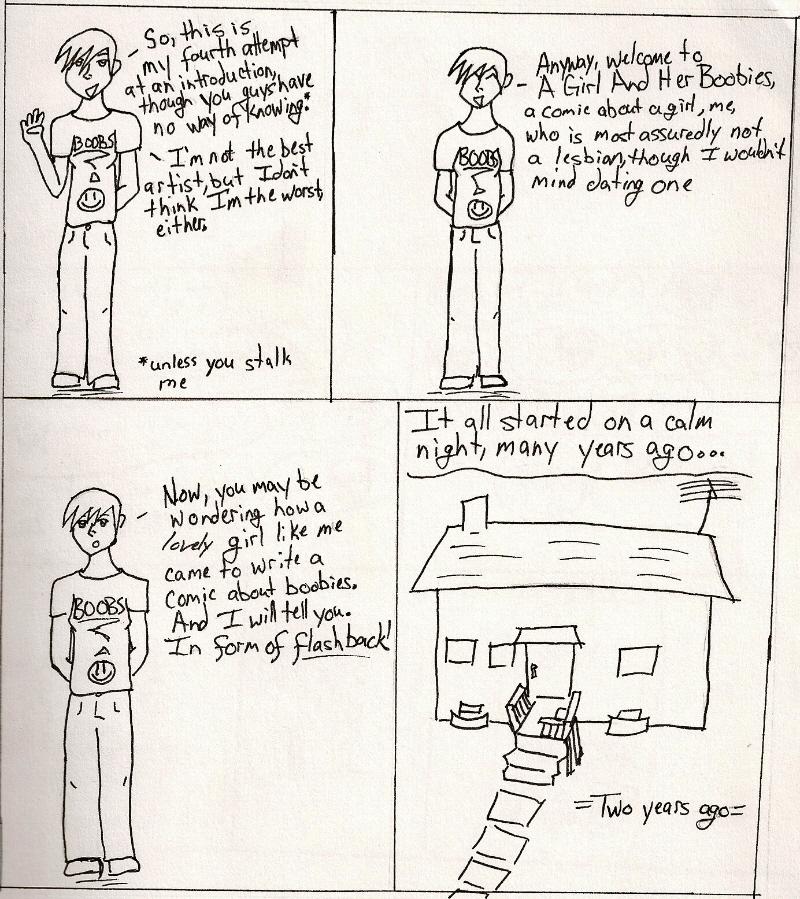 So, this is
my fourth attempt
at an introduction,
though you guys have
no way of knowing.*
I'm not the best
artist, but I don't
think I'm the worst,
either.
BOOBS
*unless you stalk
me
Anyway, welcome to
A Girl And Her Boobies,
a comic about a girl, me,
who is most assuredly not
a lesbian, though I wouldn't
mind dating one
BOOBS
Now, you may be
wondering how a
lovely girl like me
came to write a
comic about boobies.
And I will tell you.
In form of flashback!
BOOBS
It all started on a calm
night, many years ago...
=Two years ago=